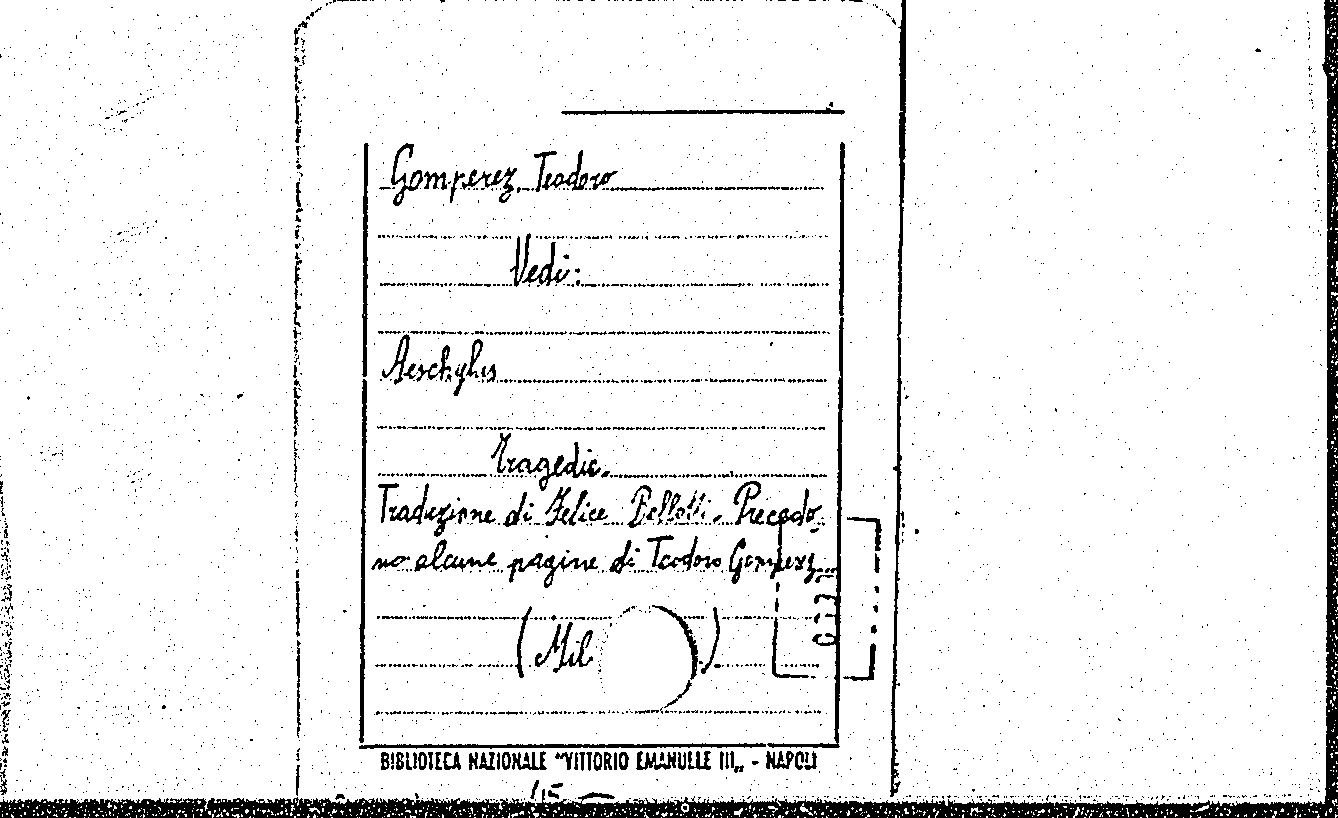 Gomperez, Teodoro
Vedi:
Aeschylus
Tragedie.
Traduzione di Felice Bellotti. Precedo-
no alcune pagine di Teodoro Gomperz...
(Mil )
BIBLIOTECA NAZIONALE "VITTORIO EMANUELE III„ - NAPOLI